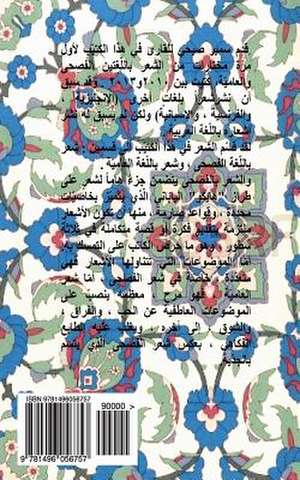 قدم سمير صبحي للقارئ في هذا الكتيب لأول
مرة مختارات من الشعر باللغتين الفصحى
والعامية، كتبت بين ٢٠١٠ و٢٠١٣. وقد سبق
أن نشر شعراً بلغات أخرى (الإنجليزية،
والفرنسية، والاسبانية) ولكن لم يسبق له نشر
أشعاره باللغة العربية.
لقد قسم الشعر في هذا الكتيب إلى قسمين: شعر
باللغة الفصحى، وشعر باللغة العامية.
والشعر بالفصحى يتضمن جزءاً هاماً لشعر على
طراز "هايكو" الياباني الذي يتميز بخاصيات
محددة، وقواعد صارمة، منها أن تكون الأشعار
ملتزمة بتقديم فكرة أو قصة متكاملة في ثلاثة
سطور. وهو ما حرص الكاتب على التمسك به.
أما الموضوعات التي تتناولها الأشعار فهي
متعددة، وخاصة في شعر الفصحى. أما شعر
العامية، فهو مرح، معظمه ينصب على
الموضوعات العاطفية عن الحب، والفراق،
والشوق.. إلى آخره. ويغلب عليه الطابع
الفكاهي، بعكس شعر الفصحى الذي يتسم
بالجدية.
ISBN 9781496056757
90000 >
9 781496 056757